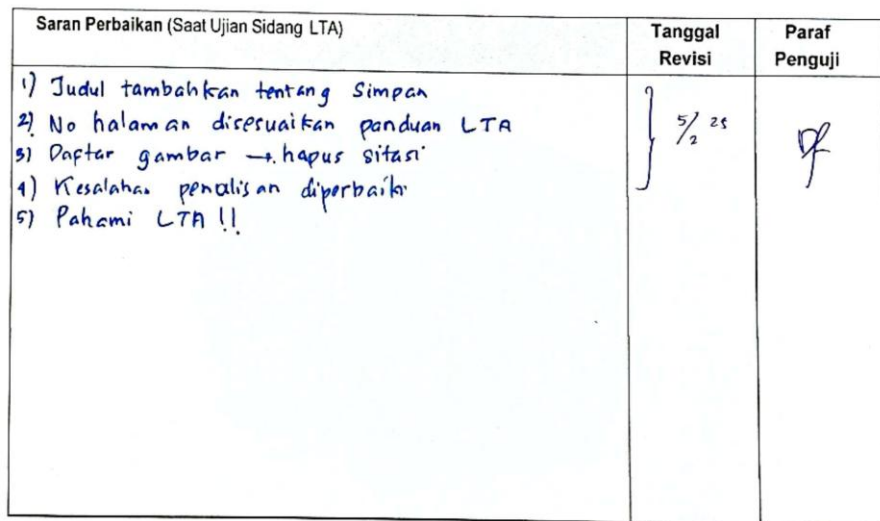 Saran Perbaikan (Saat Ujian Sidang LTA)
Tanggal Revisi
Paraf Penguji
1) Judul tambahkan tentang Simpan
2) No halaman disesuaikan panduan LTA
3) Daftar gambar → hapus sitasi
4) Kesalahan penulisan diperbaiki
5) Pahami LTA !!
5/2 25